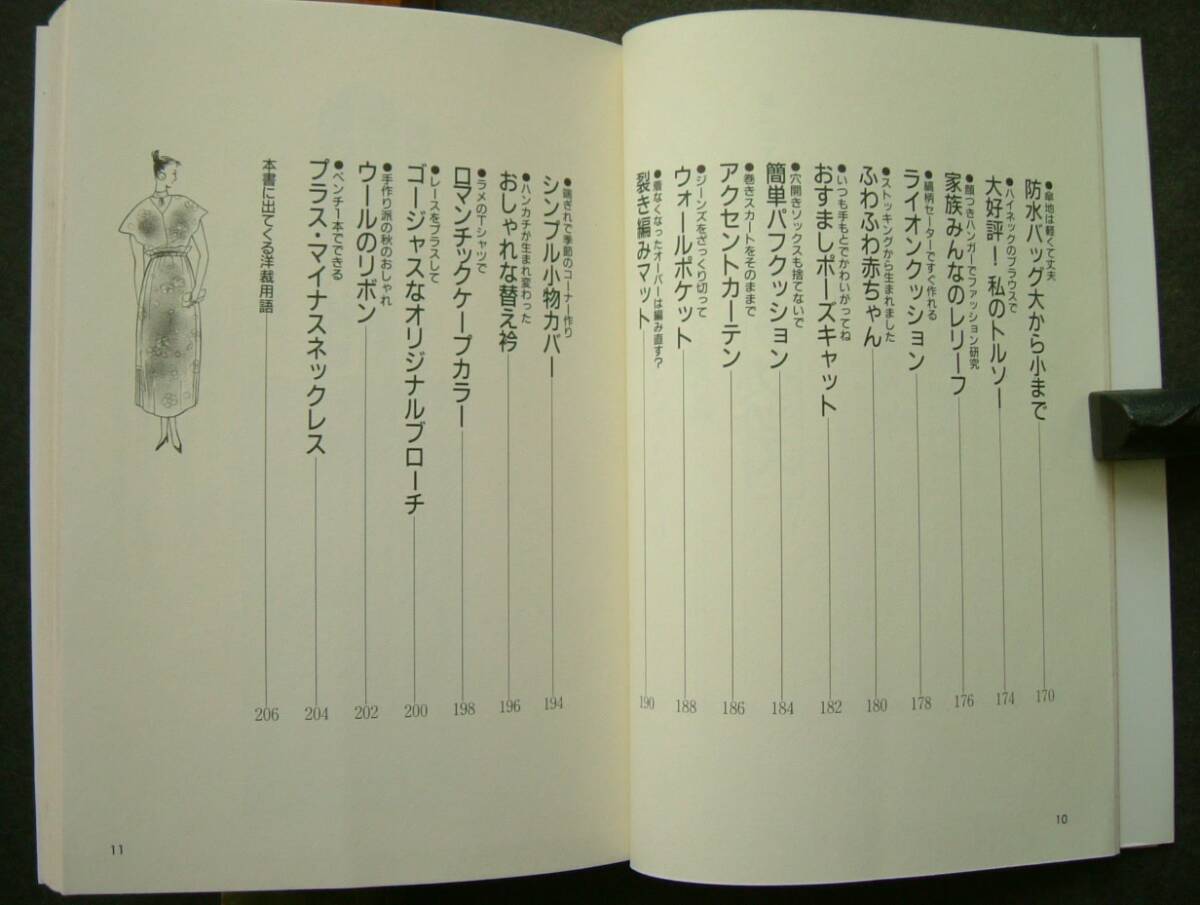 ●傘地は軽くて丈夫
防水バッグ大から小まで
170
●ハイネックのブラウスで
大好評!私のトルソー
174
●顔つきハンガーでファッション研究
家族みんなのレリーフ
176
●縞柄セーターですぐ作れる
ライオンクッション
178
●ストッキングから生まれました
ふわふわ赤ちゃん
180
●いつも手もとでかわいがってね
おすましポーズキャット
182
●穴開きソックスも捨てないで
簡単パフクッション
184
●巻きスカートをそのままで
アクセントカーテン
186
●ジーンズをざっくり切って
ウォールポケット
188
●着なくなったオーバーは編み直す?
裂き編みマット
190
10
●端ぎれで季節のコーナー作り
シンプル小物カバー
194
●ハンカチが生まれ変わった
おしゃれな替え衿
196
●ラメのTシャツで
ロマンチックケープカラー
198
●レースをプラスして
ゴージャスなオリジナルブローチ
200
●手作り派の秋のおしゃれ
ウールのリボン
202
●ペンチ一本でできる
プラス・マイナスネックレス
204
本書に出てくる洋裁用語
206
11